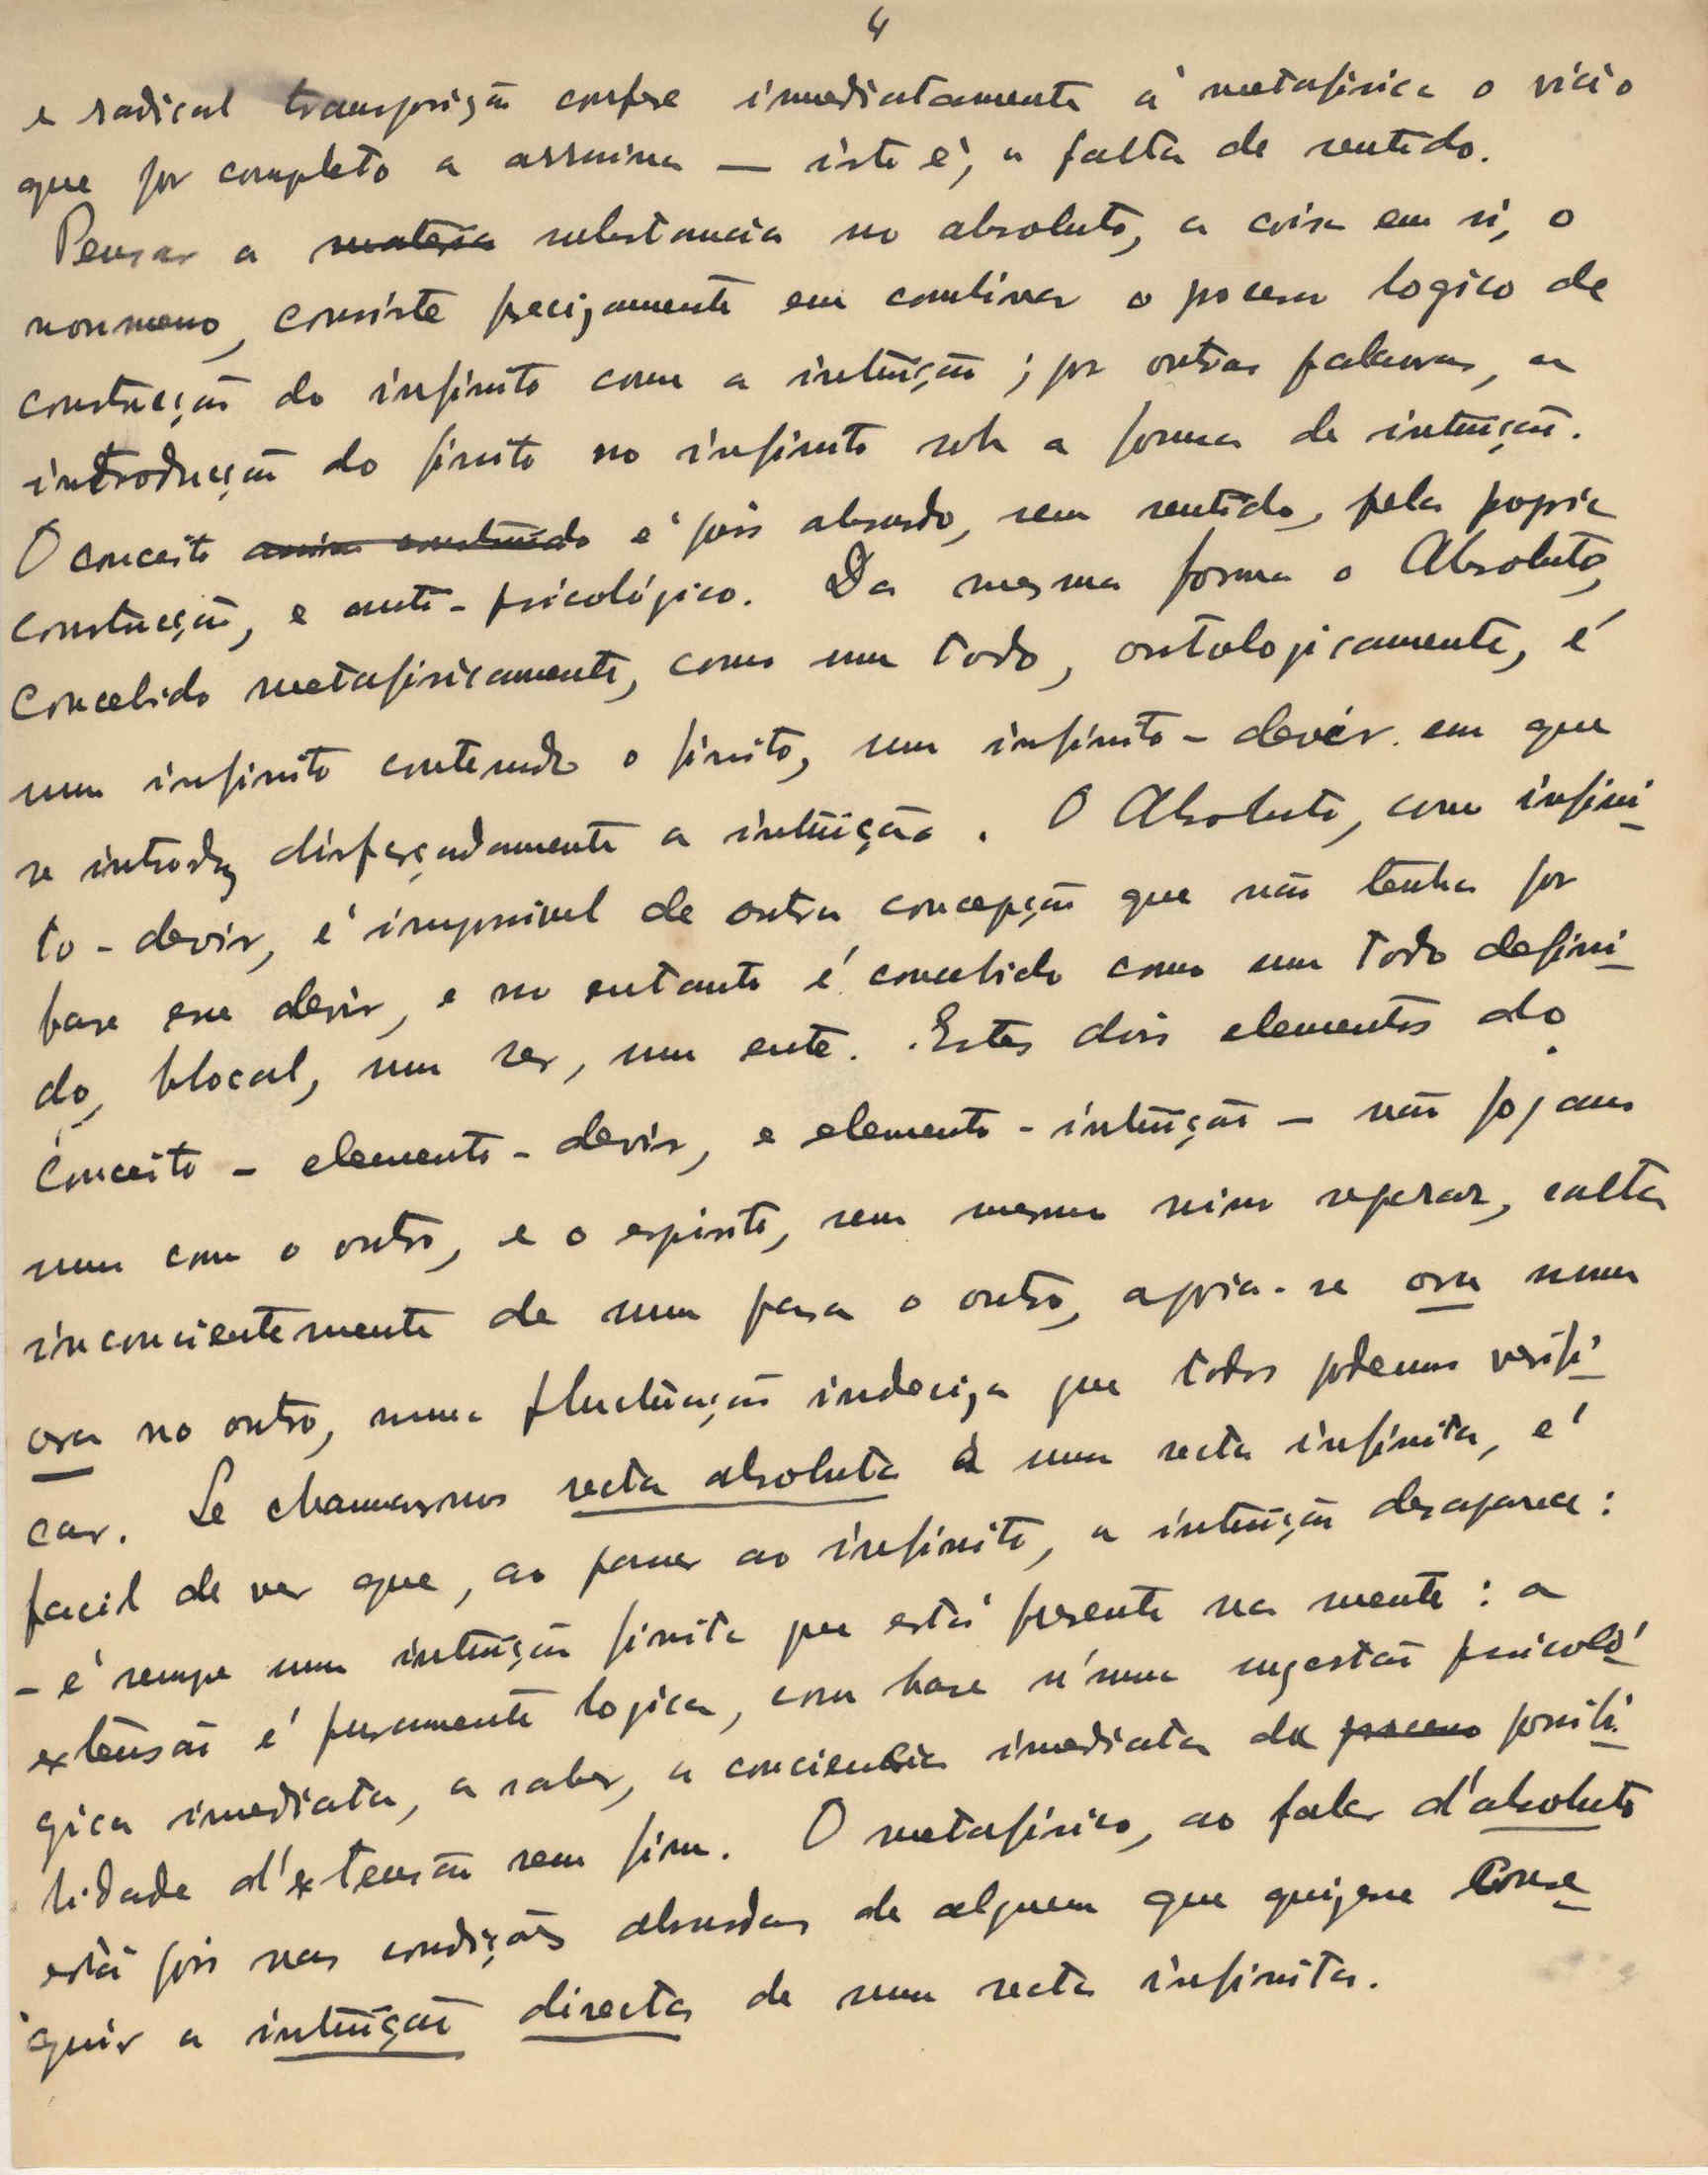 4
e radical transposição confere immediatamente á metafisica o vicio
que por completo a assruina — isto é, a falta de sentido.
Pensar a materia substancia no absoluto, a coisa em si, o
noumeno, consiste precizamente em combinar o processo logico de
construcção do infinito com a intuição; por outras palavras, a
introducção do finito no infinito sob a forma de intuição.
O conceito assim construido é pois absurdo, sem sentido, pela propria
construcção, e anti-psicológico. Da mesma forma o Absoluto,
concebido metafisicamente, como um todo, ontologicamente, é
um infinito contendo o finito, um infinito-devir em que
se introduz disfarçadamente a intuição. O Absoluto, como infini-
to-devir, é impossivel de outra concepção que não tenha por
base esse devir, e no entanto é concebido como um todo defini-
do, blocal, um ser, um ente. Estes dois elementos do
conceito – elemento-devir, e elemento-intuição – não jogam
um com o outro, e o espirito, sem mesmo reparar, salta
inconcientemente de um para o outro, apoia-se ora num
ora no outro, numa fluctuação indeciza que todos podemos verifi-
car. Se chamarmos recta absoluta a uma recta infinita, é
facil de ver que, ao passar ao infinito, a intuição desaparece:
– é sempre uma intuição finita que está presente na mente: a
extensão é puramente logica, com base n'uma sugestão psicoló-
gica imediata, a saber, a conciencia imediata da processo possibi-
lidade d'extensão sem fim. O metafisico, ao falar d'absoluto
está pois nas condições absurdas de alguem que quizesse conse-
guir a intuição directa de uma recta infinita.